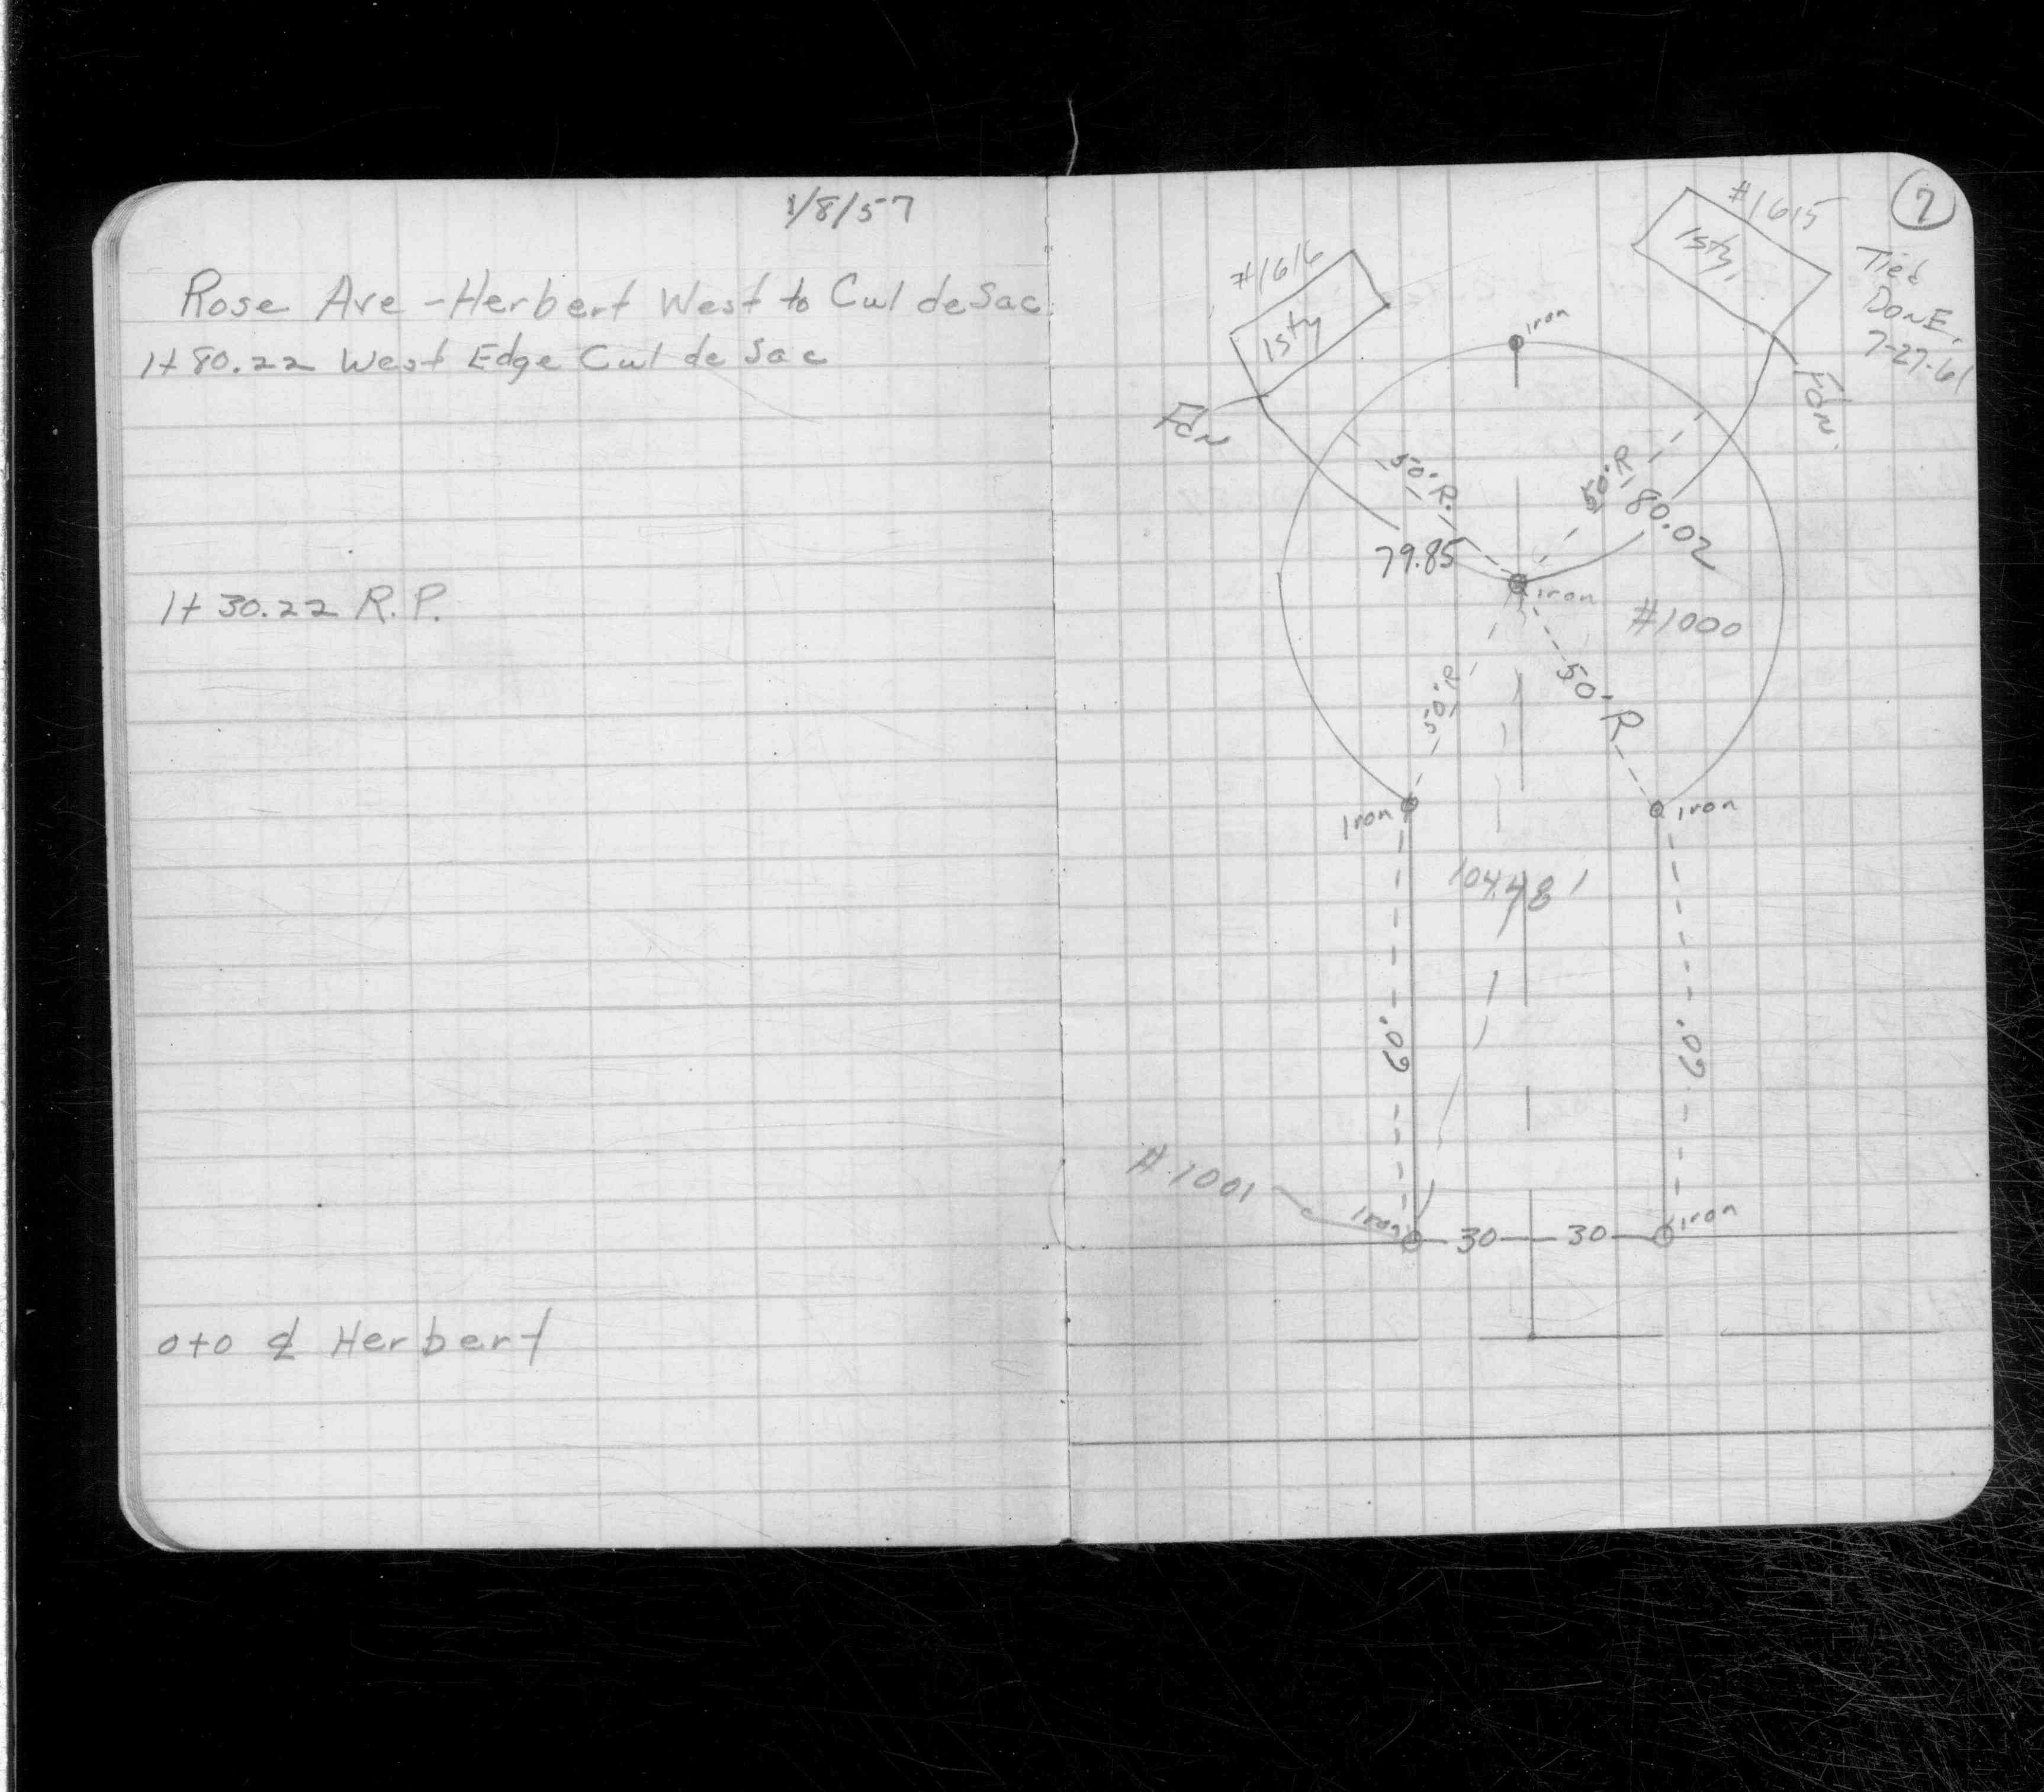 1/8/57
Rose Ave - Herbert West to Cul de Sac
1+80.22 West Edge Cul de Sac
1+30.22 R.P.
0+0 ℄ Herbert
7
#1615
1sty.
Tied
DonE.
7-27-61
#1616
1sty
iron
Fdn
Fdn.
50'R.
50'R
80.02
79.85
iron
#1000
50'R
50-R
Iron
iron
104.48'
60'
60'
#1001
iron
30
30
iron